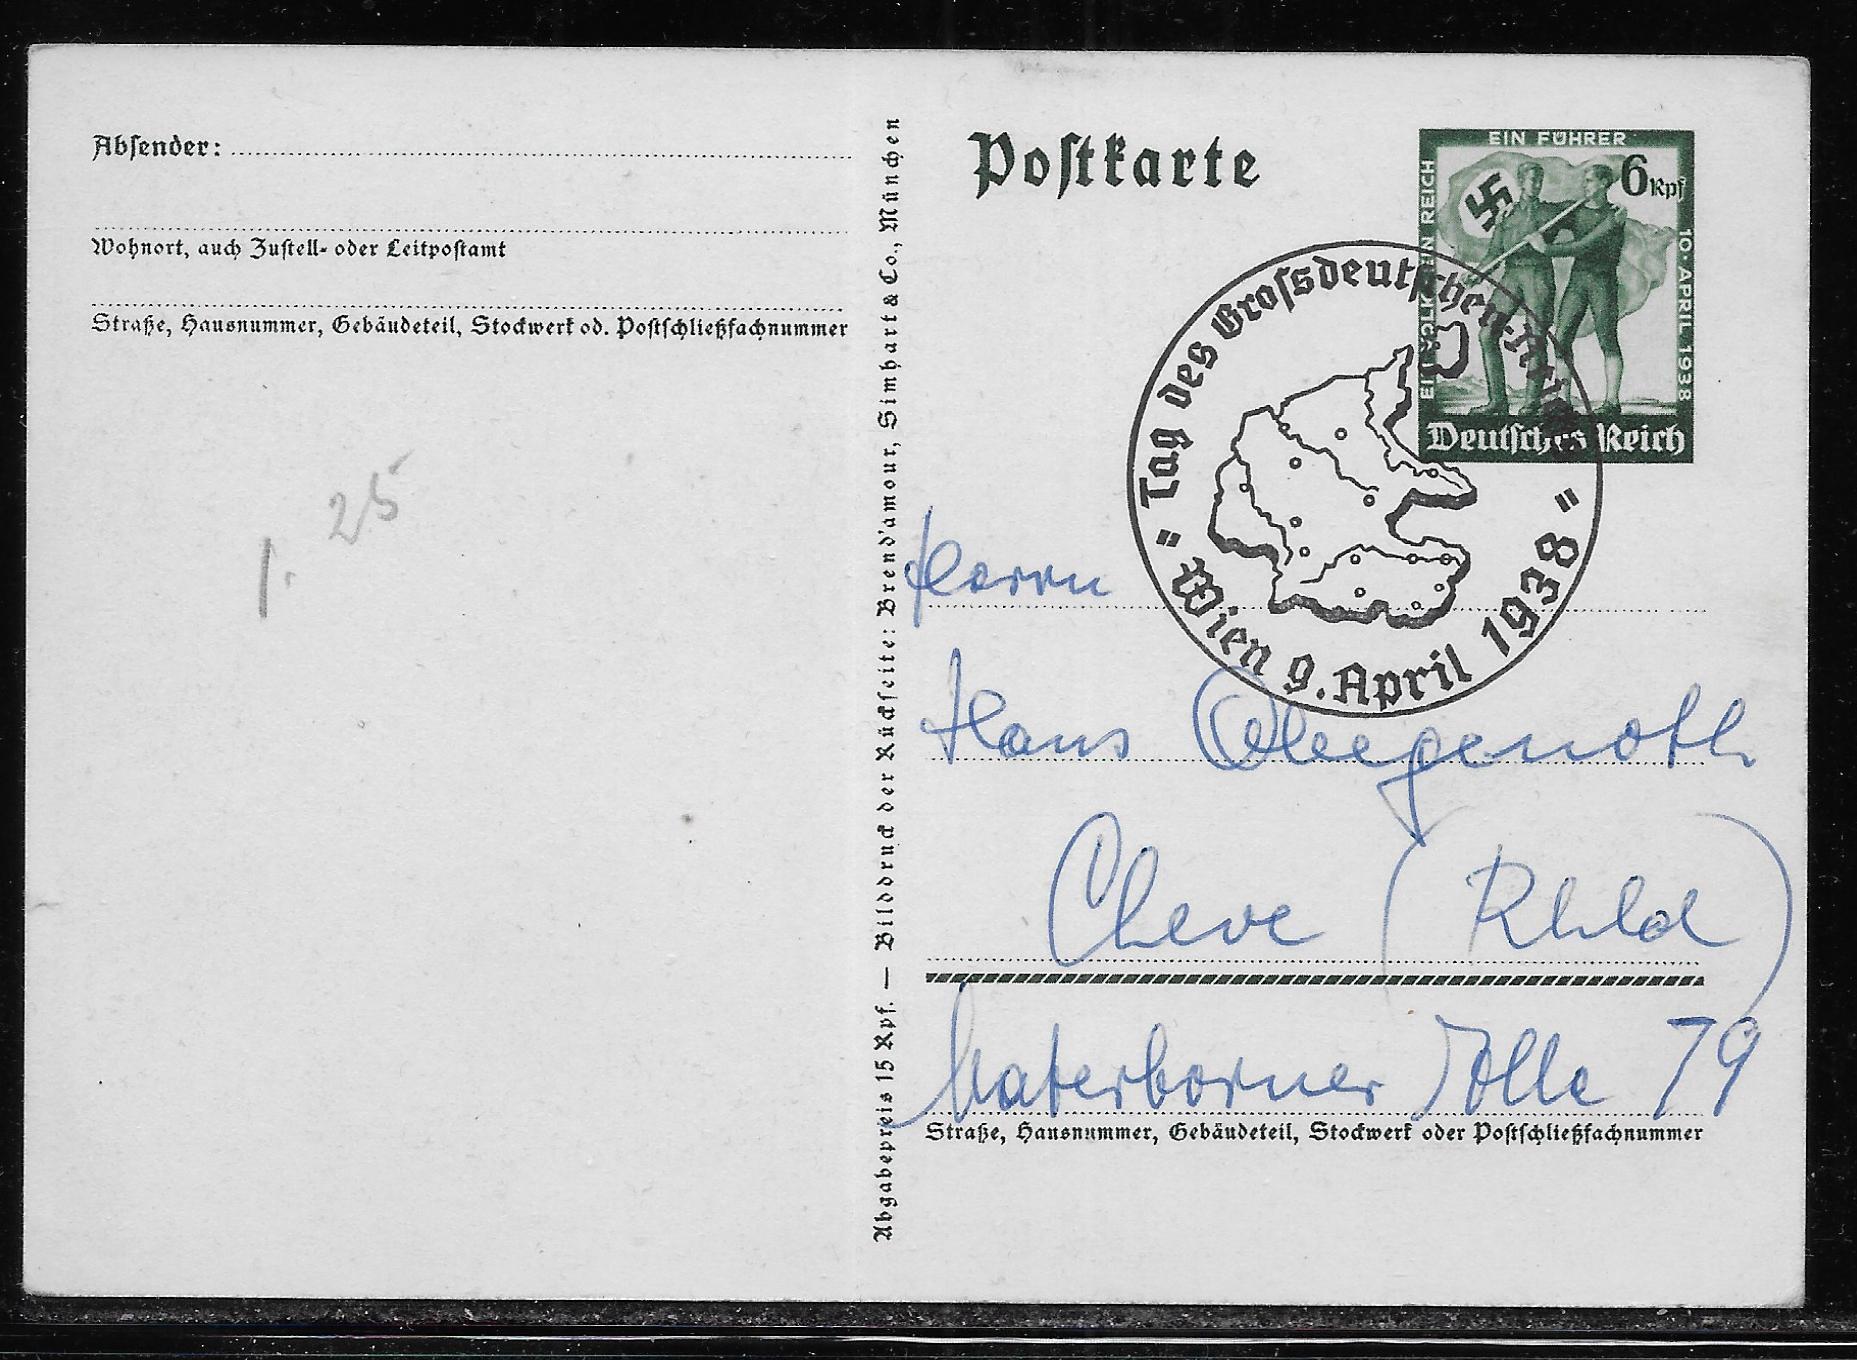 Absender:
Wohnort, auch Zustell- oder Leitpostamt
Straße, Hausnummer, Gebäudeteil, Stockwerk od. Postschließfachnummer
25
1.
Abgabepreis 15 Rpf. — Bilddruck der Rückseite: Brend'amour, Simhart & Co., München
Postkarte
EIN FÜHRER
6 Rpf
EIN VOLK EIN REICH
10. APRIL 1938
Deutsches Reich
" Tag des Grossdeutschen Reiches "
Wien 9. April 1938
Herrn
Hans
Cleve (Rhld)
Materborner Allee 79
Straße, Hausnummer, Gebäudeteil, Stockwerk oder Postschließfachnummer